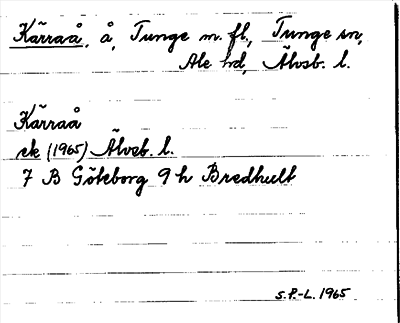 Kärraå, å, Tunge m. fl., Tunge sn,
Ale hd, Älvsb. l.
Kärraå
ek (1965) Älvsb. l.
7 B Göteborg 9 h Bredhult
S.F.-L. 1965